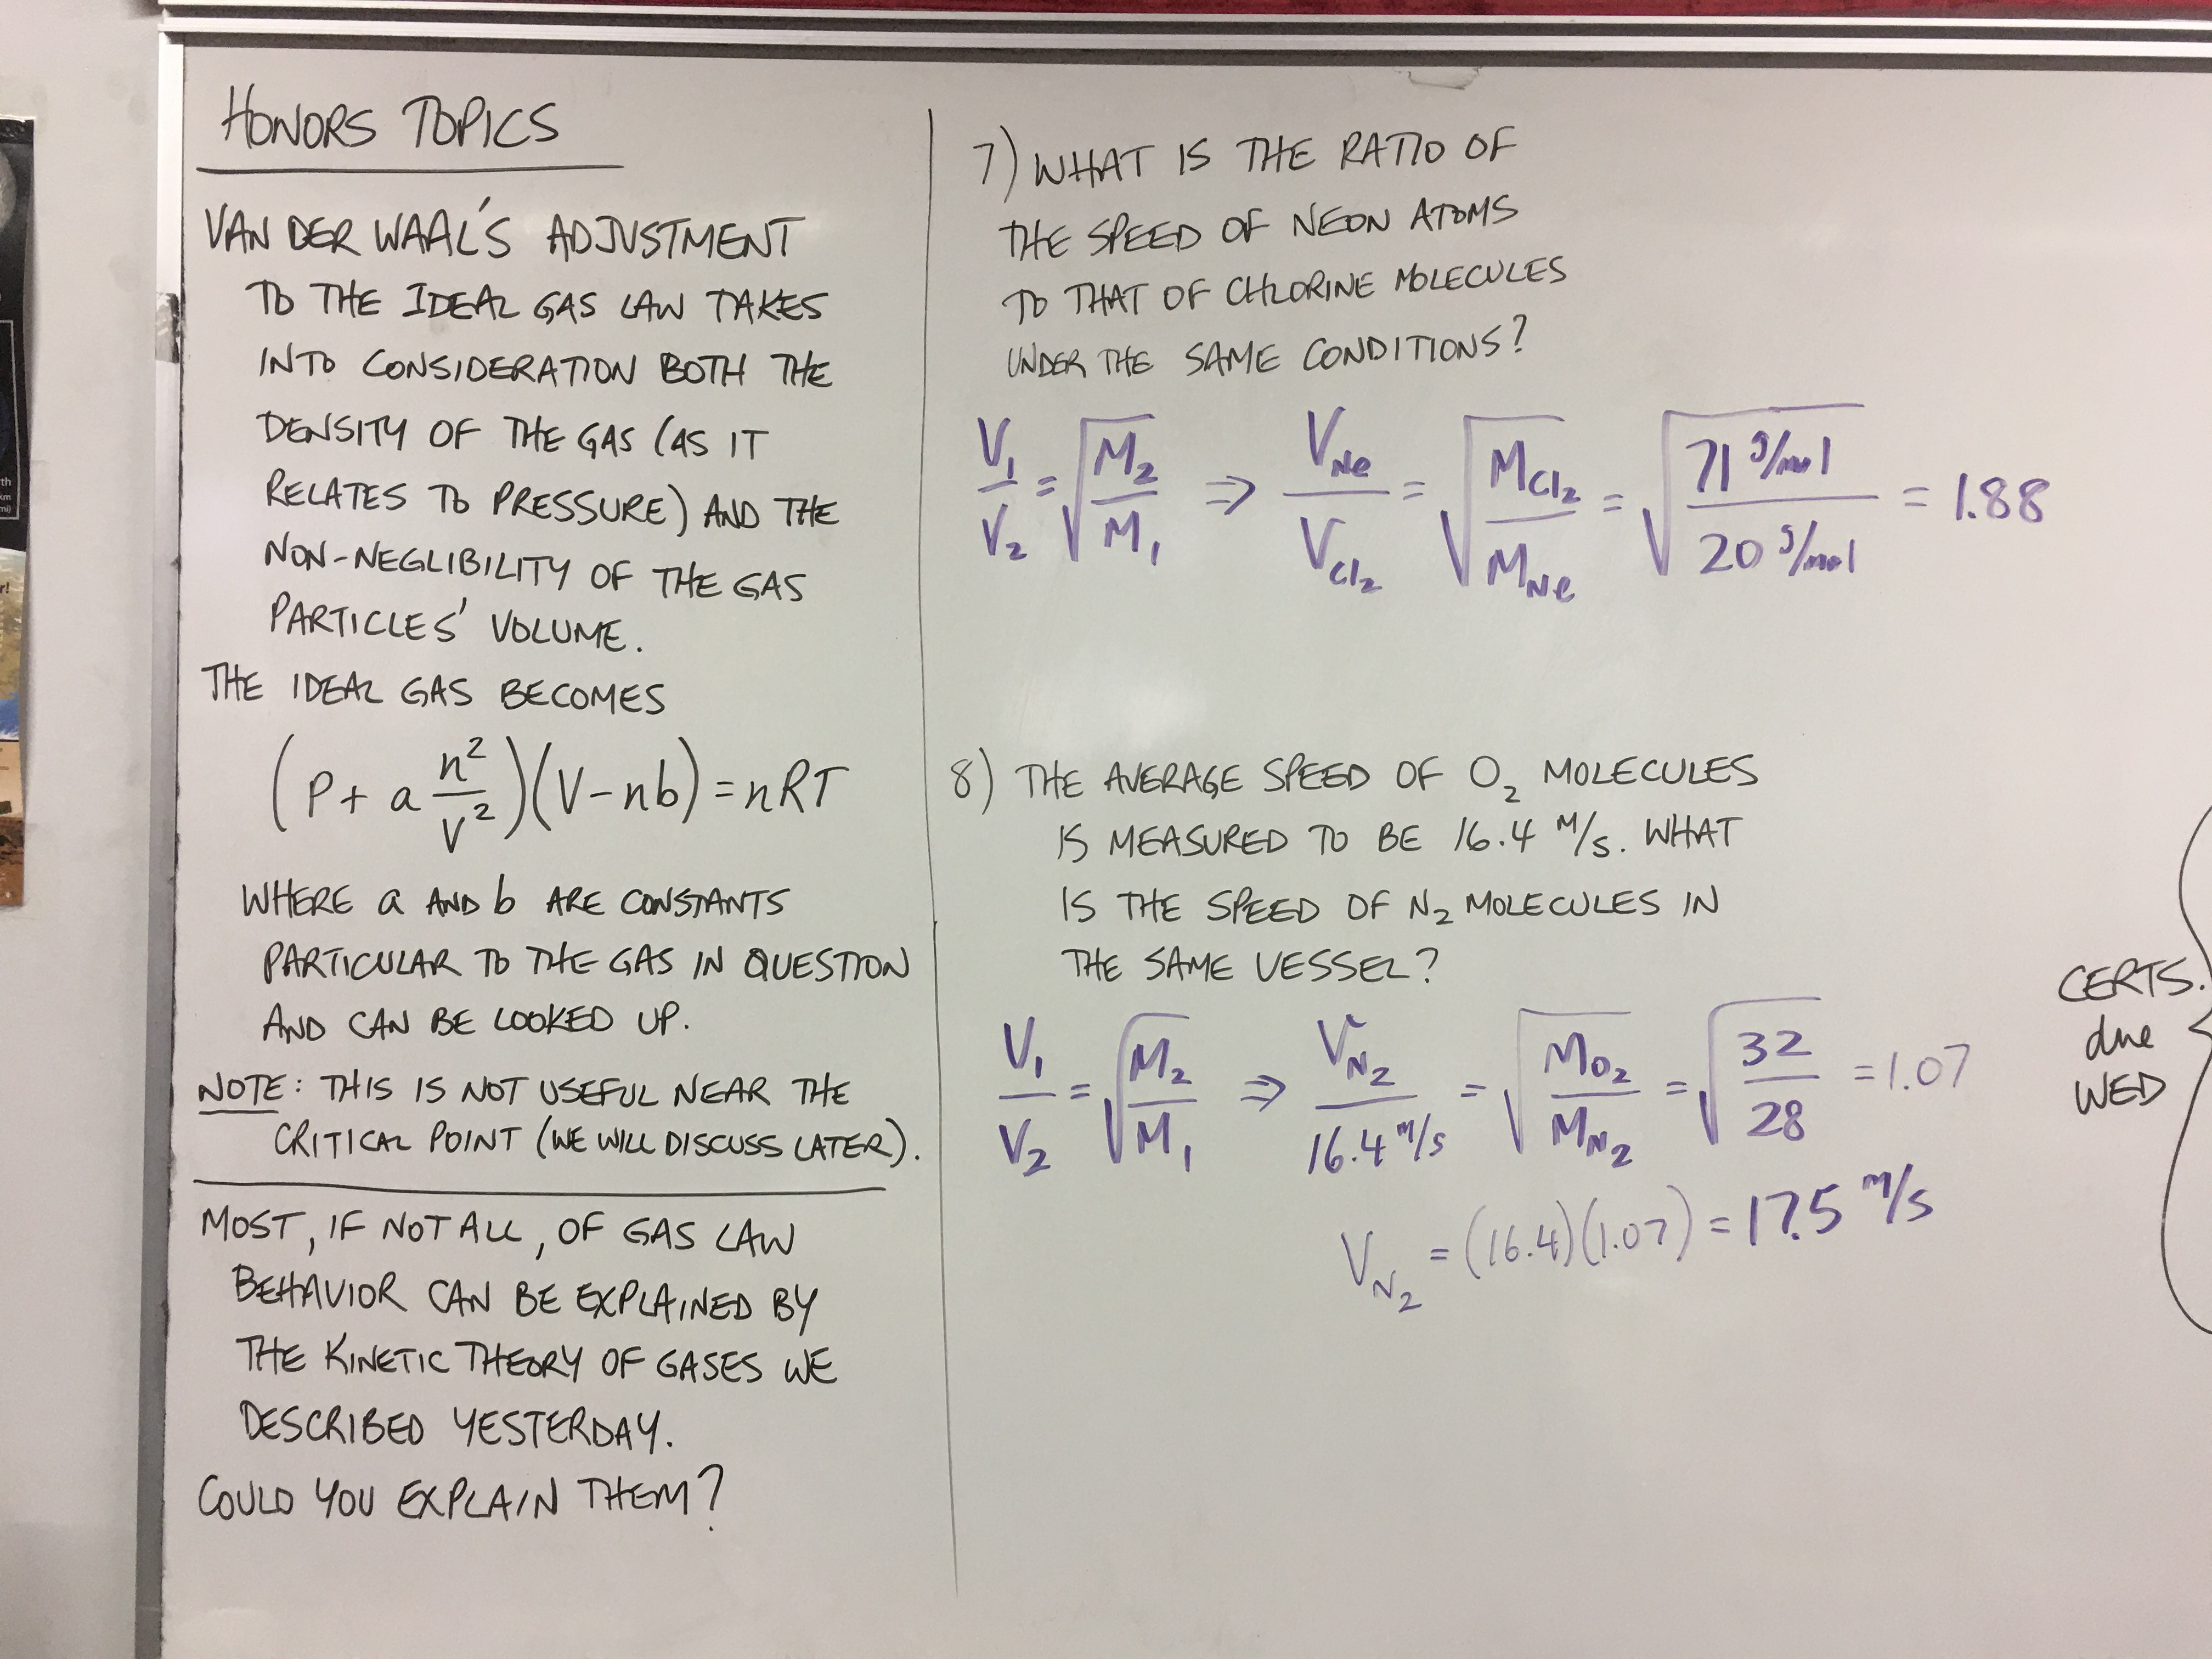 HONORS TOPICS
VAN DER WAAL'S ADJUSTMENT
TO THE IDEAL GAS LAW TAKES
INTO CONSIDERATION BOTH THE
DENSITY OF THE GAS (AS IT
RELATES TO PRESSURE) AND THE
NON-NEGLIBILITY OF THE GAS
PARTICLES' VOLUME.
THE IDEAL GAS BECOMES
(P + a n²/V²)(V-nb) = nRT
WHERE a AND b ARE CONSTANTS
PARTICULAR TO THE GAS IN QUESTION
AND CAN BE LOOKED UP.
NOTE: THIS IS NOT USEFUL NEAR THE
CRITICAL POINT (WE WILL DISCUSS LATER).
MOST, IF NOT ALL, OF GAS LAW
BEHAVIOR CAN BE EXPLAINED BY
THE KINETIC THEORY OF GASES WE
DESCRIBED YESTERDAY.
COULD YOU EXPLAIN THEM?
7) WHAT IS THE RATIO OF
THE SPEED OF NEON ATOMS
TO THAT OF CHLORINE MOLECULES
UNDER THE SAME CONDITIONS?
V₁/V₂ = √(M₂/M₁) ⇒ V_Ne/V_Cl₂ = √(M_Cl₂/M_Ne) = √(71 g/mol / 20 g/mol) = 1.88
8) THE AVERAGE SPEED OF O₂ MOLECULES
IS MEASURED TO BE 16.4 M/S. WHAT
IS THE SPEED OF N₂ MOLECULES IN
THE SAME VESSEL?
V₁/V₂ = √(M₂/M₁) ⇒ V_N₂/16.4 m/s = √(M_O₂/M_N₂) = √(32/28) = 1.07
V_N₂ = (16.4)(1.07) = 17.5 m/s
CERTS.
due
WED